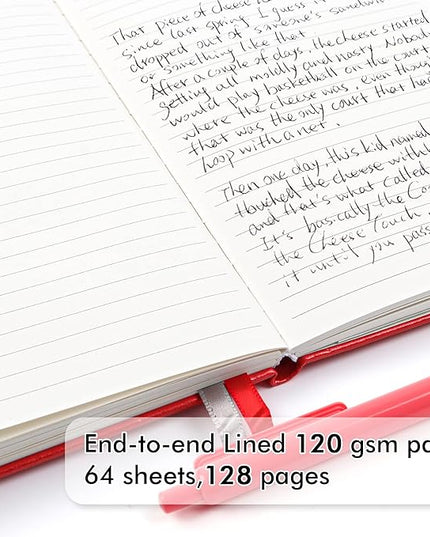 That piece of cheese
since last spring I guess it
dropped out of someone's sandwich
or something like that
After a couple of days, the cheese started
getting all moldly and nasty. Nobod
would play basketball on the court
where the cheese was. even though
that was the only court that had
hoop with a net.
Then one day, this kid named
touched the cheese with
and that's what called
It's basically the Coo
the Cheese Touch
it until you pass
End-to-end Lined 120 gsm pa
64 sheets,128 pages